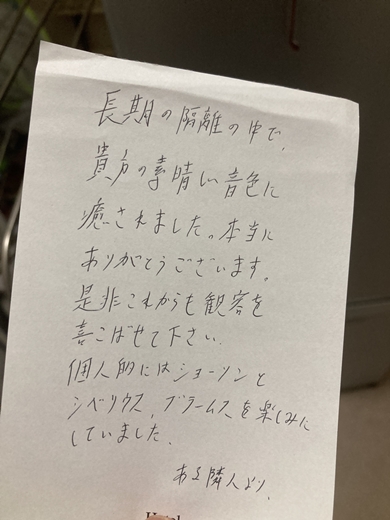 長期の隔離の中で、
貴方の素晴しい音色に
癒されました。本当に
ありがとうございます。
是非これからも観客を
喜こばせて下さい。
個人的にはショーソンと
シベリウス、ブラームスを楽しみに
していました。
ある隣人より、